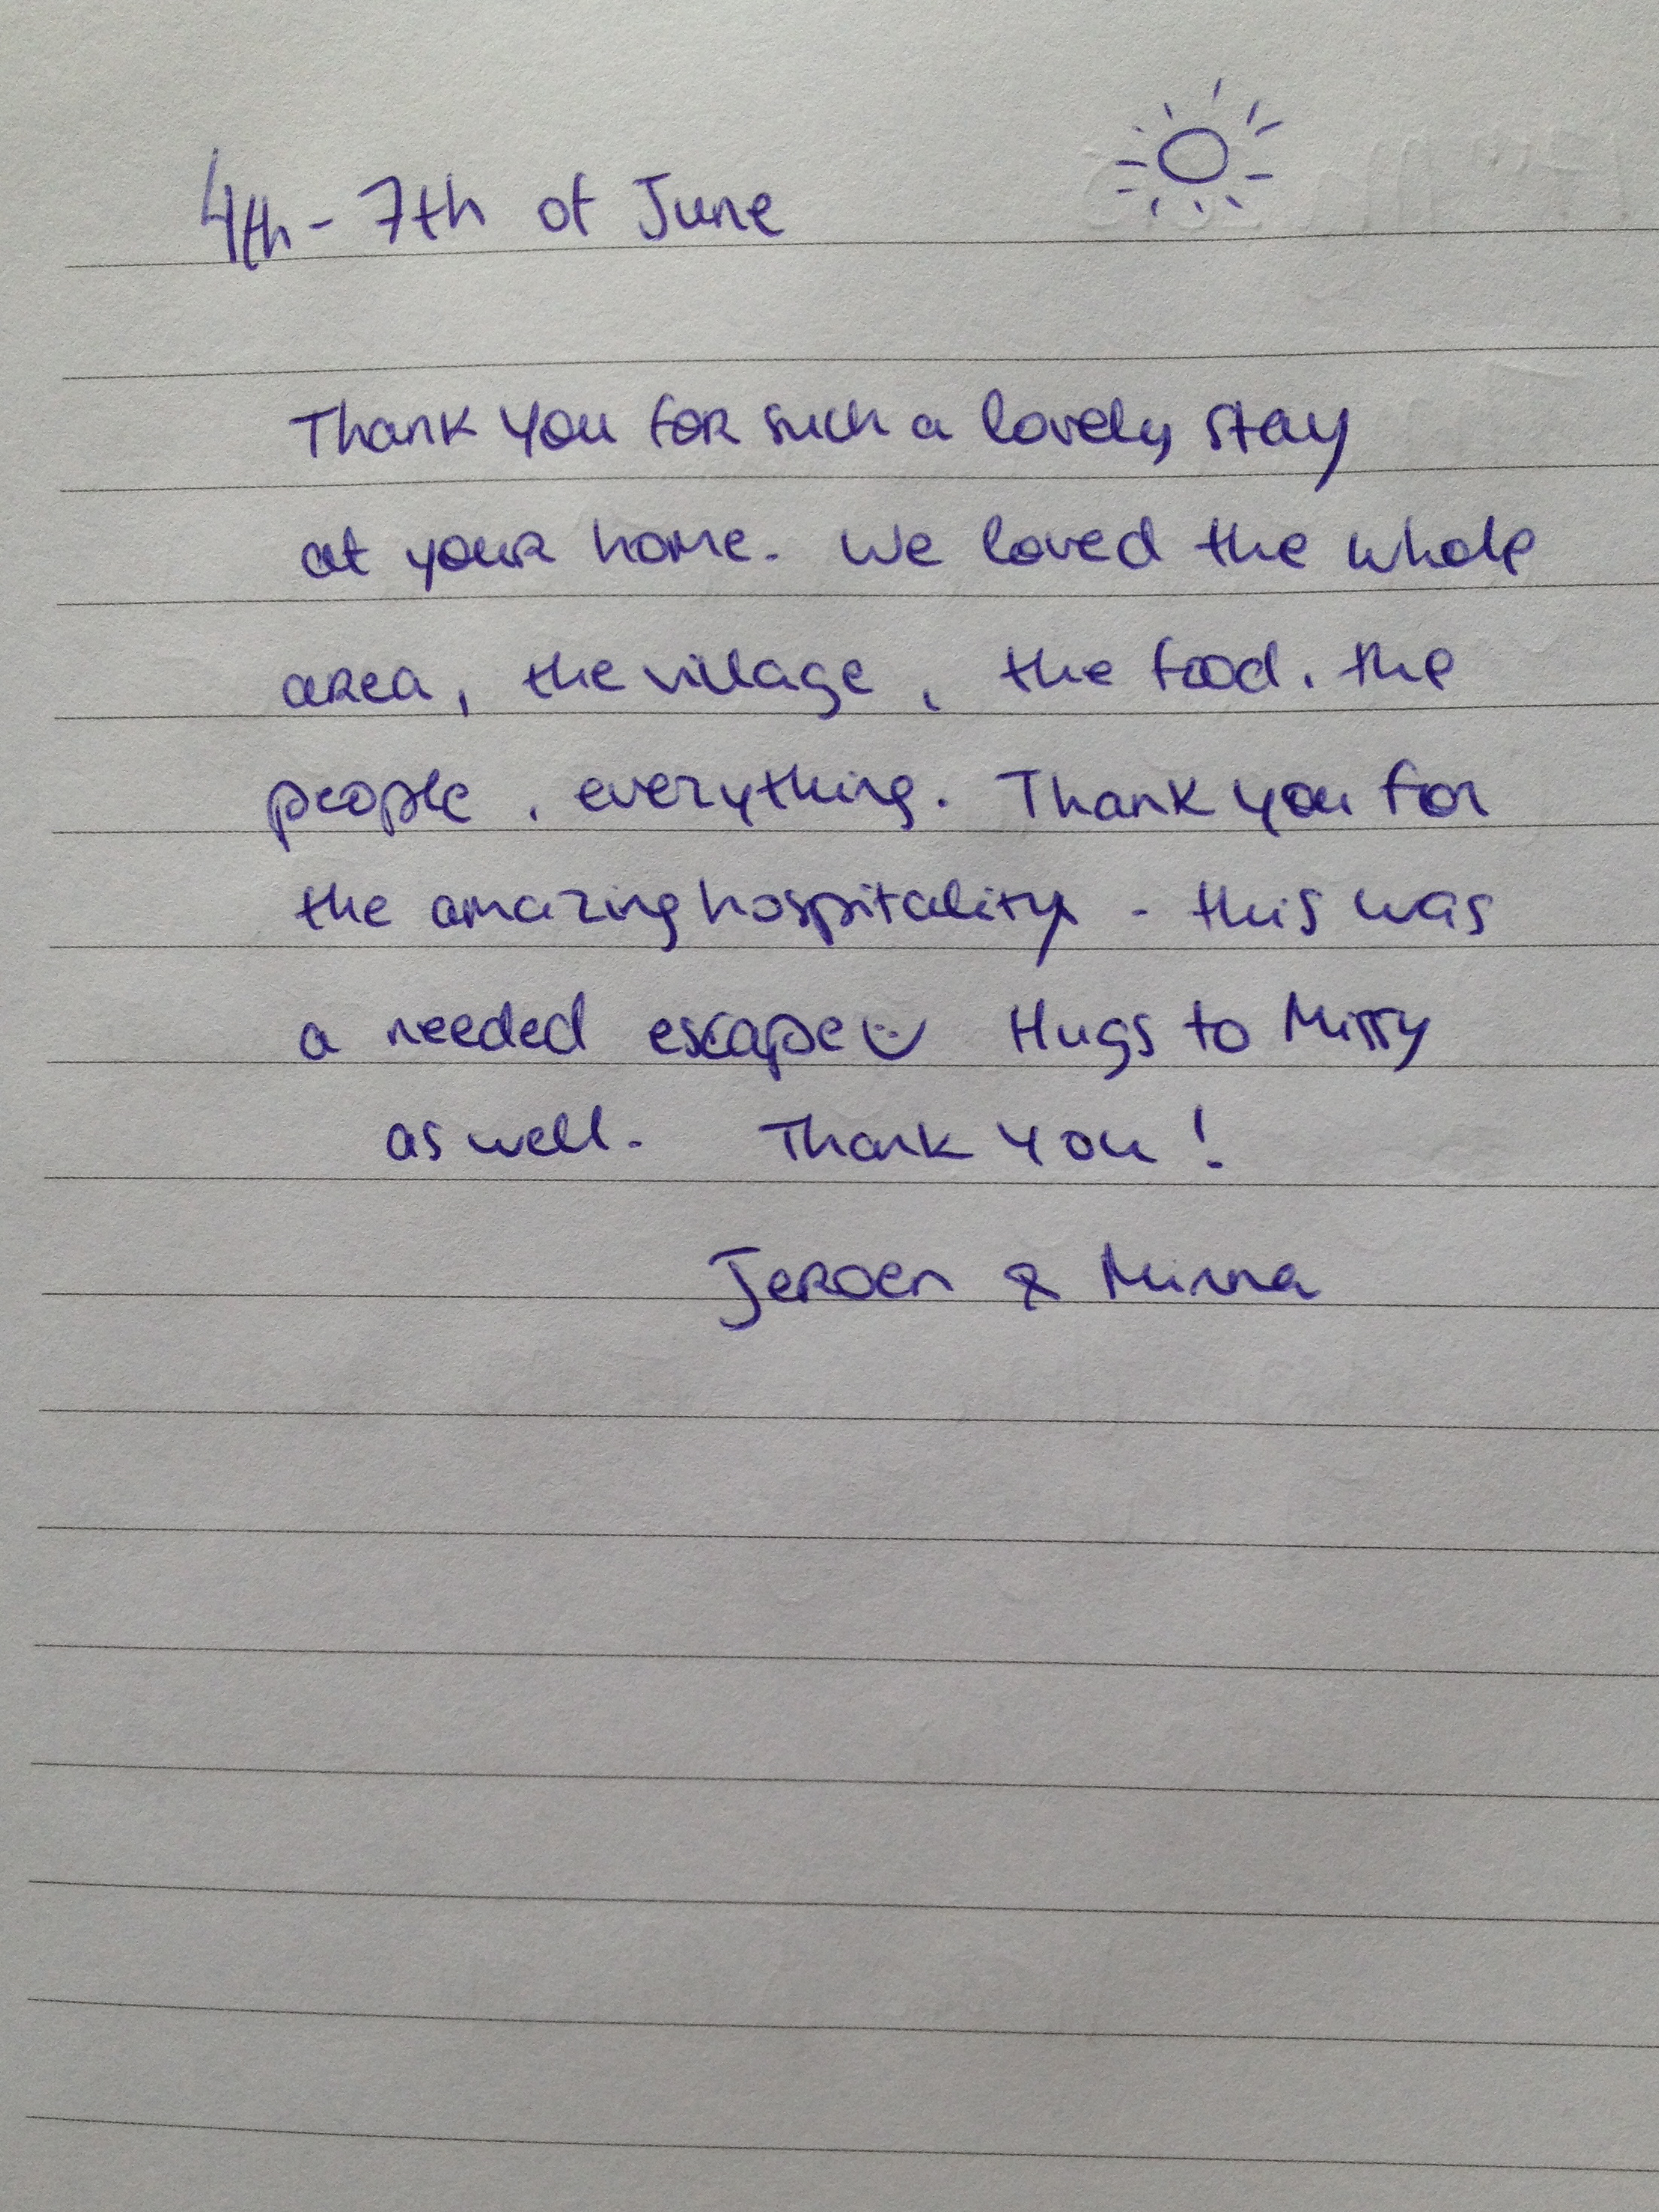 4th - 7th of June
Thank you for such a lovely stay
at your home. We loved the whole
area, the village, the food, the
people, everything. Thank you for
the amazing hospitality - this was
a needed escape Hugs to Missy
as well. Thank you!
Jeroen & Minna